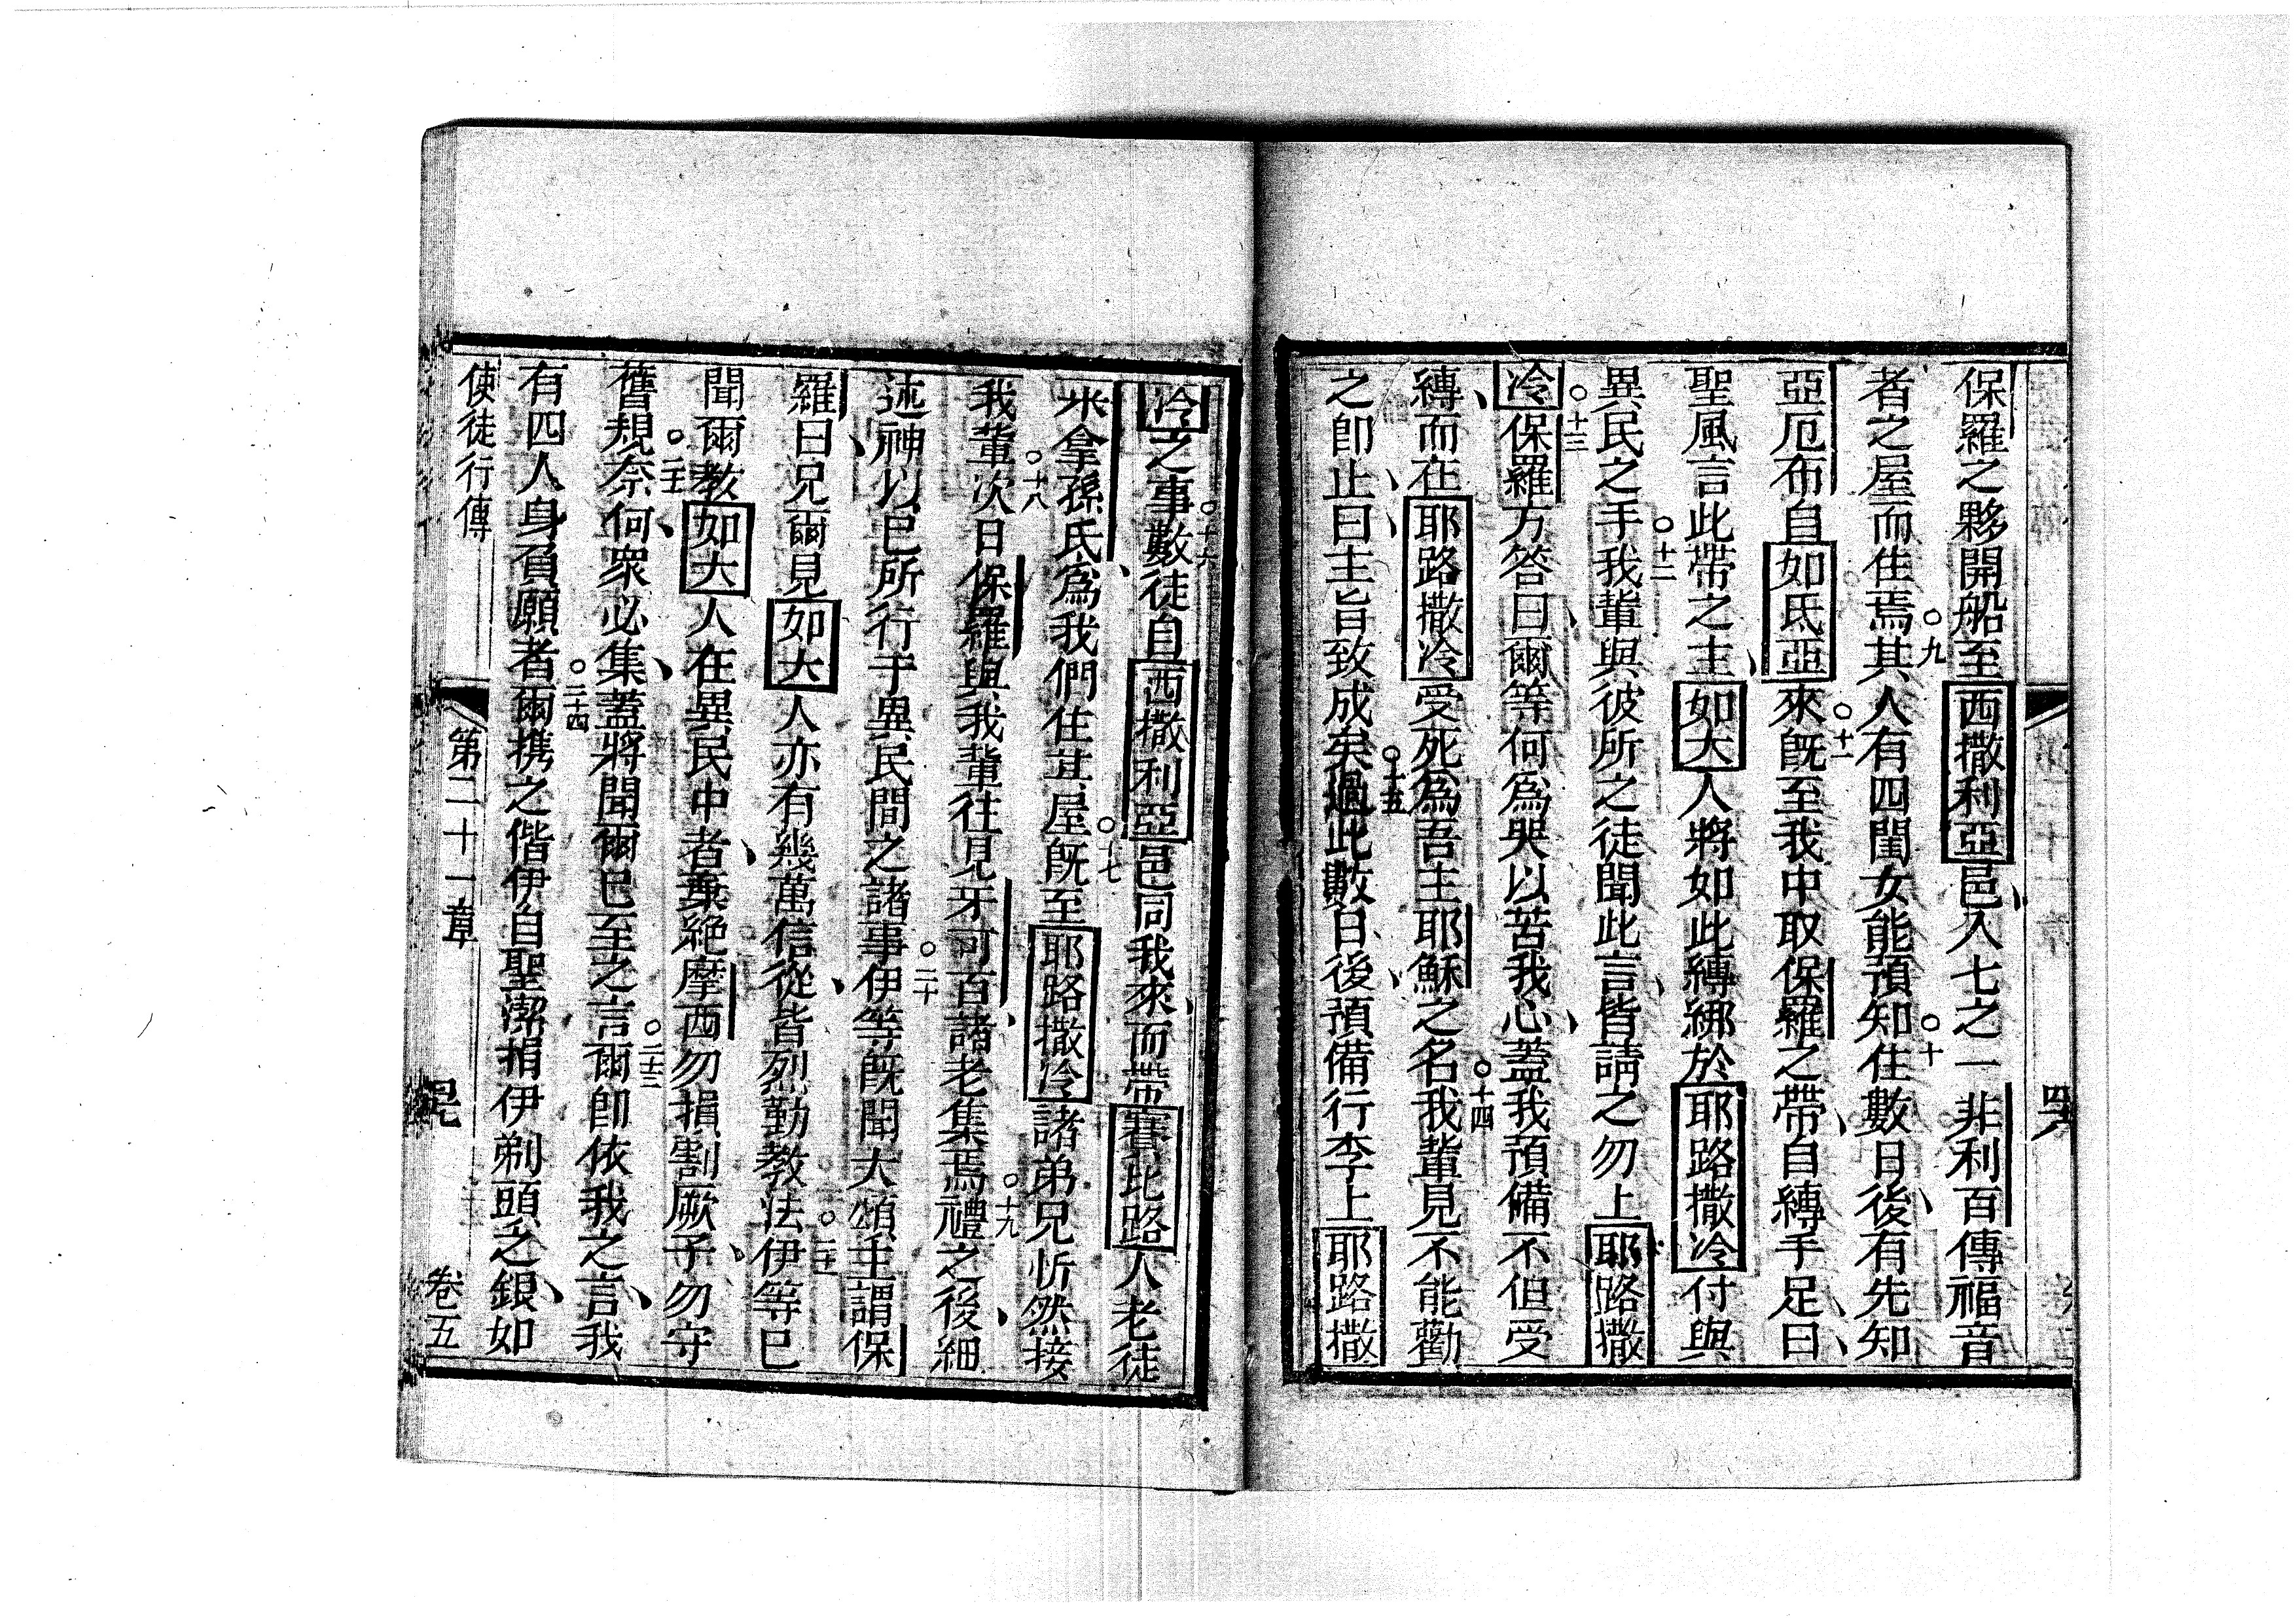 保羅之夥開船至西撒利亞邑、入七之一非利百傳福音
者之屋而住焉○九其人有四閨女能預知○十住數日後、有先知
亞厄布自如氐亞來○十一既至我中取保羅之帶、自縛手足、曰、
聖風言此帶之主、如大人將如此縛綁於耶路撒冷付與
異民之手○十二我輩與彼所之徒聞此言、皆請之勿上耶路撒
冷○十三保羅方答曰、爾等何為哭以苦我心、蓋我預備不但受
縛、而在耶路撒冷受死為吾主耶穌之名○十四我輩見不能勸
之即止、曰、主旨致成矣○十五過此數日、後、預備行李上耶路撒
冷之事○十六數徒自西撒利亞邑同我來、而帶賽比路人老徒
米拿孫氏、為我們住其屋○十七既至耶路撒冷諸弟兄忻然接
我輩○十八次日保羅與我輩往見牙可百、諸老集焉○十九禮之後、細
述神以已所行于異民間之諸事○二十伊等既聞大頌主、謂保
羅、曰兄爾見如大人亦有幾萬信從、皆烈勤教法○二十一伊等已
聞爾教如大人在異民中者、棄絕摩西勿損割厥子、勿守
舊規○二十二奈何、眾必集、蓋將聞爾已至之言○二十三爾即依我之言、我
有四人身負願者○二十四爾携之偕伊自聖潔捐伊剃頭之銀、如
使徒行傳
第二十一章
卷五